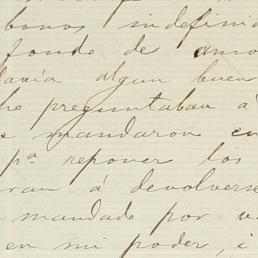 bonos indefini
fondo de amo
davía algun buen
ho preguntaban á
e mandaron en
pª reponer los
ran á devolverse
mandado por v
en mi poder, i